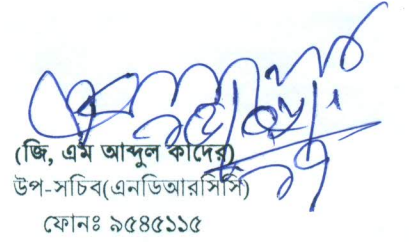 (জি, এম আব্দুল কাদের)
উপ-সচিব(এনডিআরসিসি)
ফোনঃ ৯৫৪৫১১৫